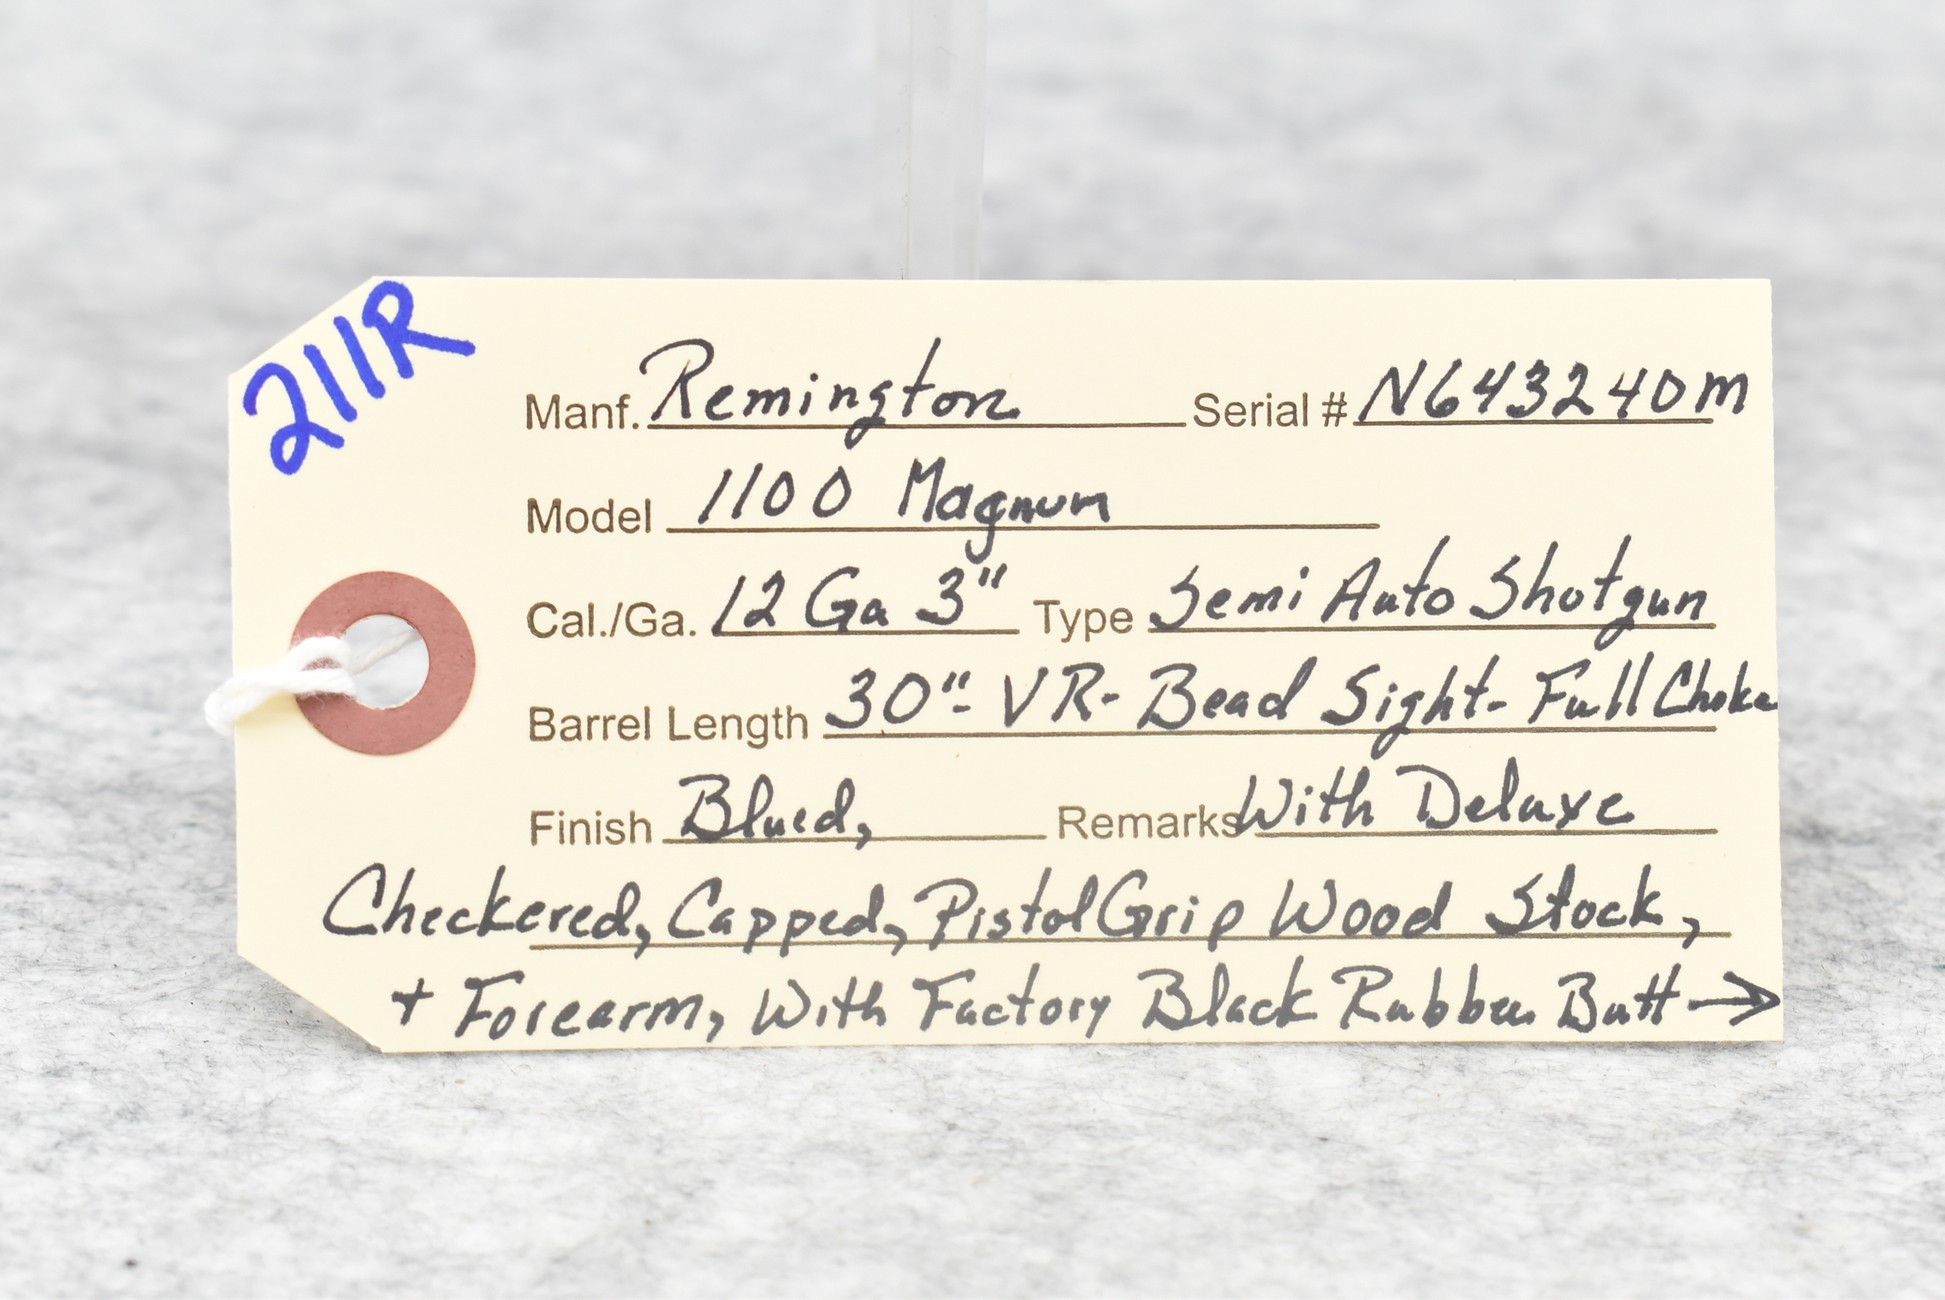 211R
Manf. Remington Serial # N643240M
Model 1100 Magnum
Cal./Ga. 12 Ga 3" Type Semi Auto Shotgun
Barrel Length 30"- VR- Bead Sight- Full Choke
Finish Blued, Remarks With Deluxe
Checkered, Capped, Pistol Grip Wood Stock,
+ Forearm, With Factory Black Rubber Butt →